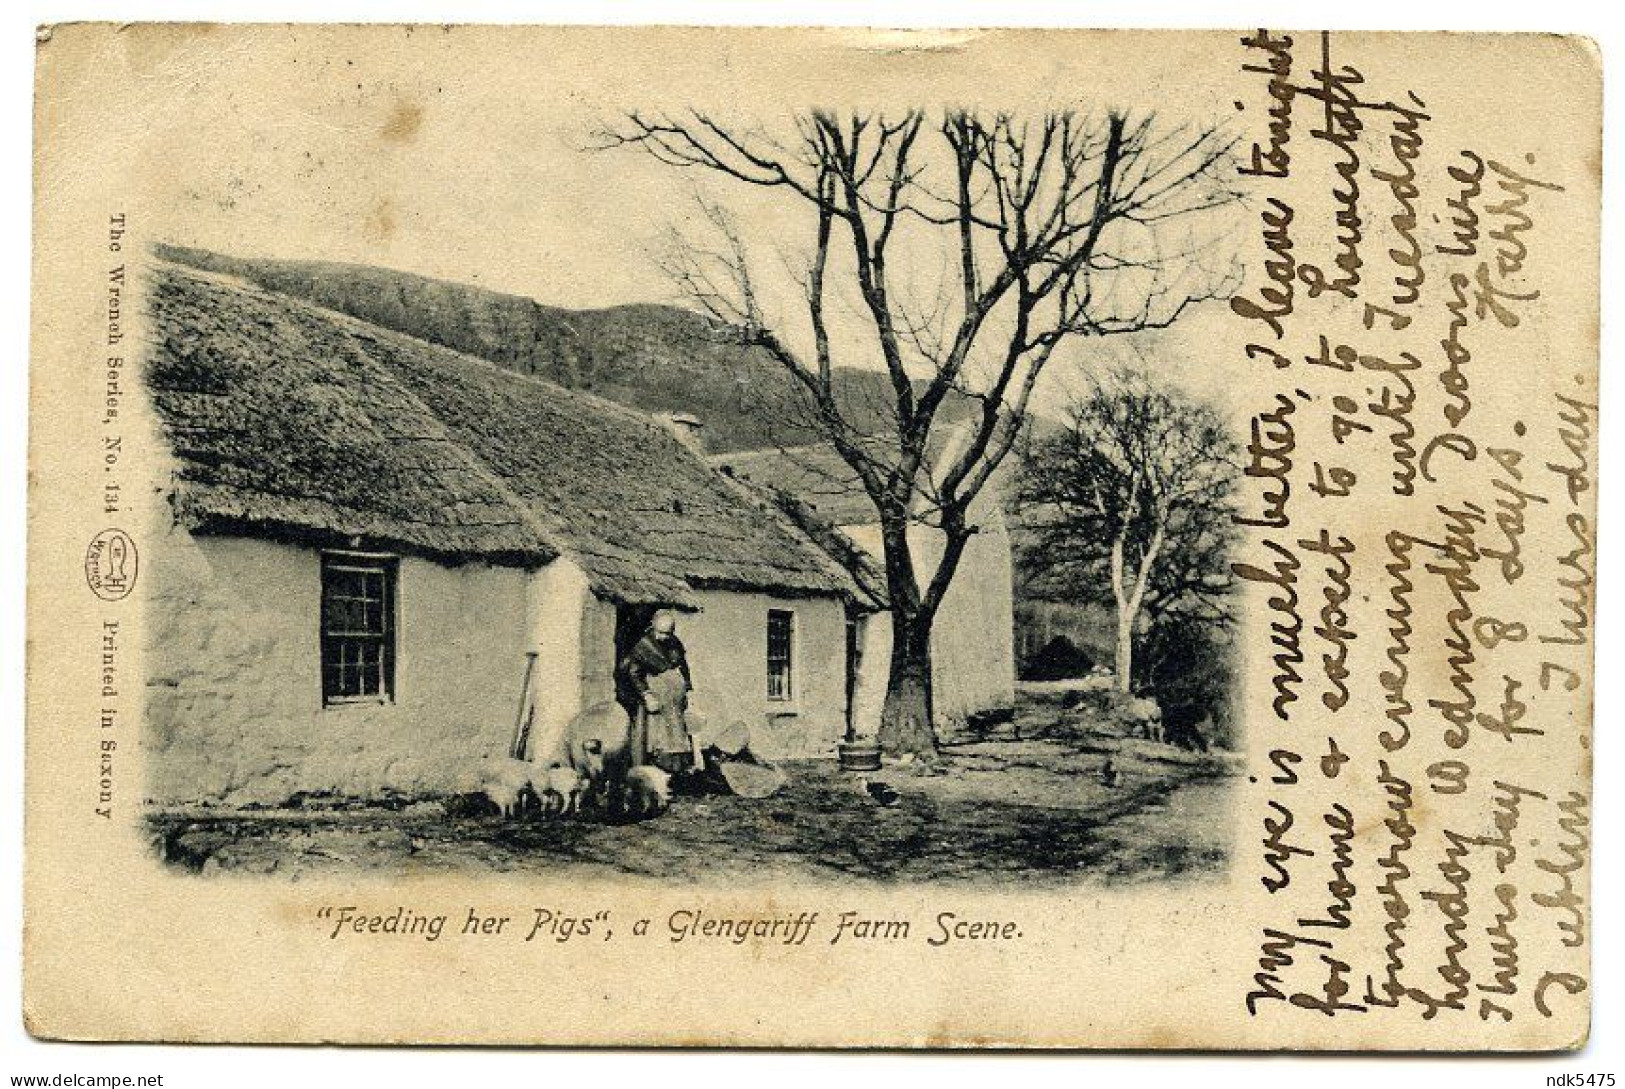 The Wrench Series, No. 134
WRENCH
Printed in Saxony
"Feeding her Pigs", a Glengariff Farm Scene.
My eye is much better, I leave tonight
for home & expect to go to Lowestoft
tomorrow evening until Tuesday,
London Wednesday, Devonshire
Thursday for 8 days. Harry.
Dublin. Thursday.
ndk5475